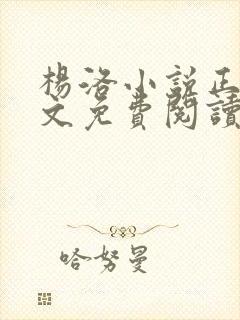 楊洛小說正
文免費閱讀
哈努曼